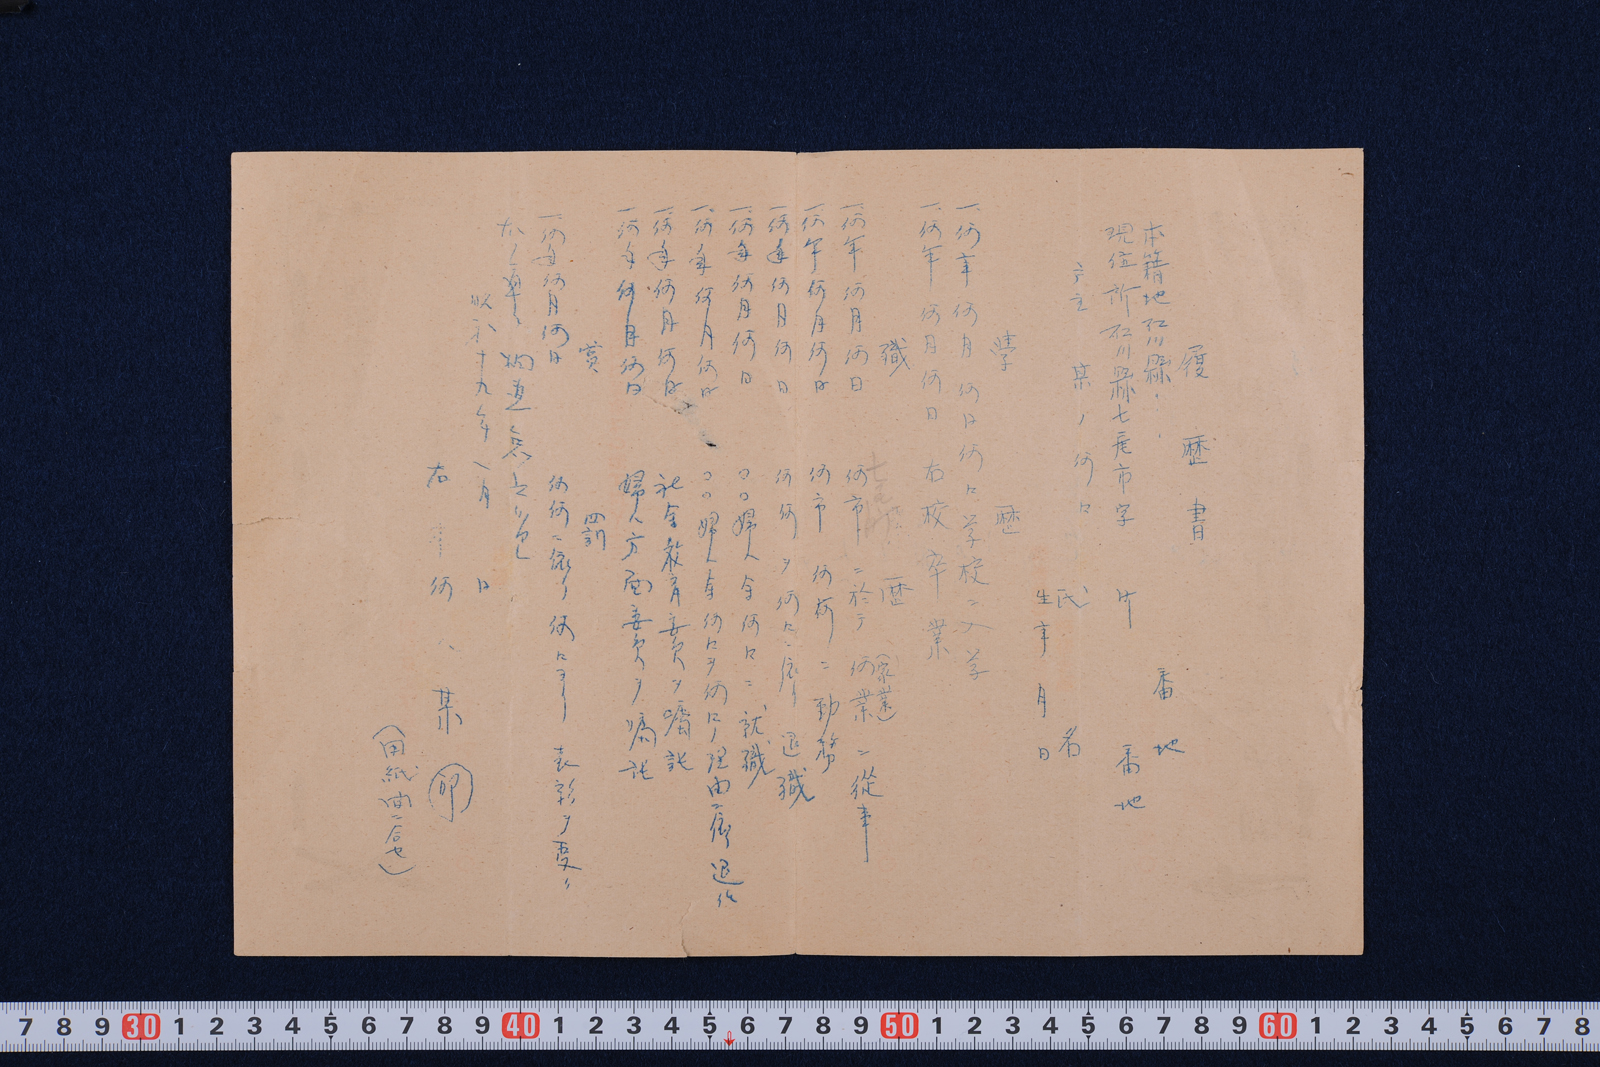 履歴書
本籍地石川縣
番地
現住所石川縣七尾市字
番地
戸主 某ノ何々
氏名
生年月日
學歴
一、何年何月何日何々学校ニ入学
一、何年何月何日右校卒業
職歴(家業)
一、何年何月何日 何市ニ於テ何業ニ從事
一、何年何月何日 何市何何ニ勤務
一、何年何月何日 何何ヲ何々ニ依リ退職
一、何年何月何日 〇〇婦人会何々ニ就職
一、何年何月何日 〇〇婦人会何々ヲ何々ノ理由ニ依リ退任
一、何年何月何日 社会教育委員ヲ嘱託
一、何年何月何日 婦人方面委員ヲ嘱託
賞罰
一、何年何月何日 何何ニ依リ何々ヨリ表彰ヲ受ク
右ノ通リ相違無之候也
昭和十九年一月 日
右 何ノ某 印
(用紙

7 8 9 30 1 2 3 4 5 6 7 8 9 40 1 2 3 4 5 6 7 8 9 50 1 2 3 4 5 6 7 8 9 60 1 2 3 4 5 6 7 8